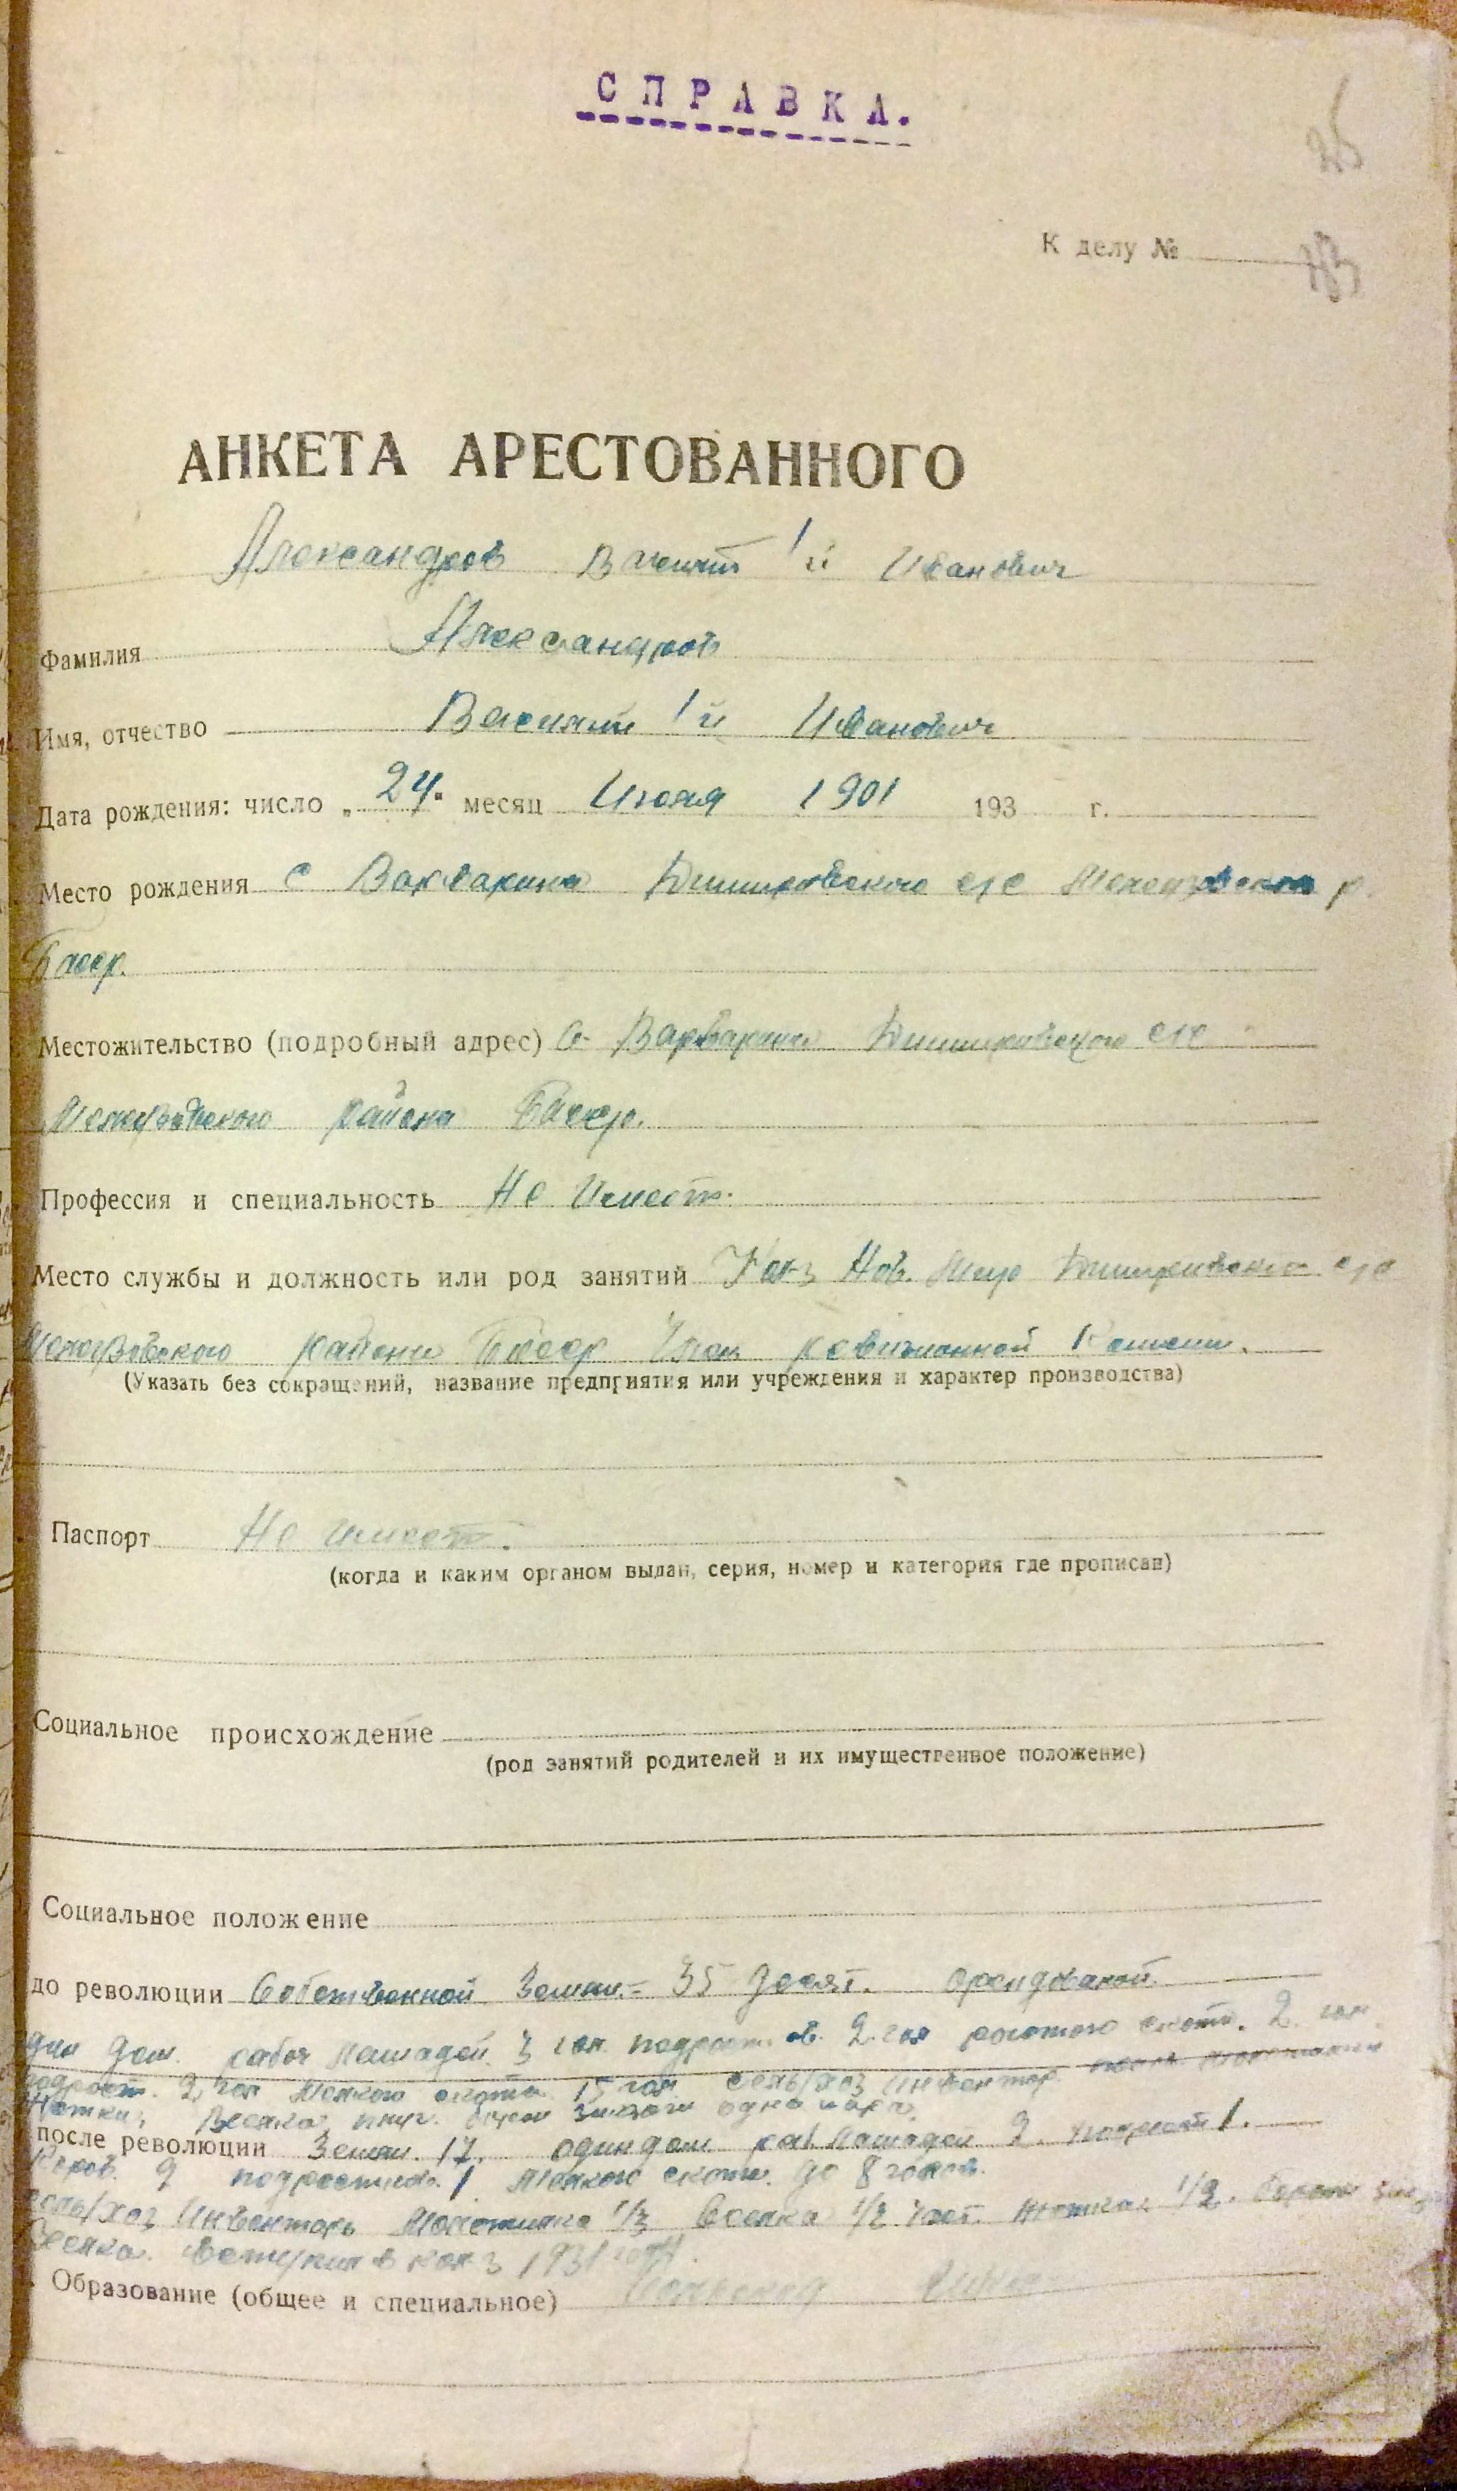 СПРАВКА.
25
К делу №
АНКЕТА АРЕСТОВАННОГО
Александров Василий 1й Иванович
Фамилия Александров
Имя, отчество Василий 1й Иванович
Дата рождения: число „24" месяц Июля 1901 193 г.
Место рождения с Варварина р.
Басср.
Местожительство (подробный адрес) с. Варварина с/с
района Басср.
Профессия и специальность Не Имеет.
Место службы и должность или род занятий Кол-з Нов. с/с
района Басср Член ревизионной Комисии.
(Указать без сокращений, название предприятия или учреждения и характер производства)
Паспорт Не имеет.
(когда и каким органом выдан, серия, номер и категория где прописан)
Социальное происхождение
(род занятий родителей и их имущественное положение)
Социальное положение
до революции Собственной Земли.= 35 десят. орендваной
дин дом. рабоч Лошадей 3 гол. подрост. 2 гол рогатого скота. 2 гол.
подрост. 2 гол Мелкого скота 15 гол. сель/хоз Инвентар
Веелка плуг. одна пара.
после революции Земли 17. один дом раб Лошадей 2. подрост 1.
Коров. 2 подростков 1 Мелкого скота. до 8 голов.
сель/хоз Инвентарь Молотилка 1/3 Веелка 1/2 част. 1/2.
Сеелка. вступил в колз 1931 году.
Образование (общее и специальное)